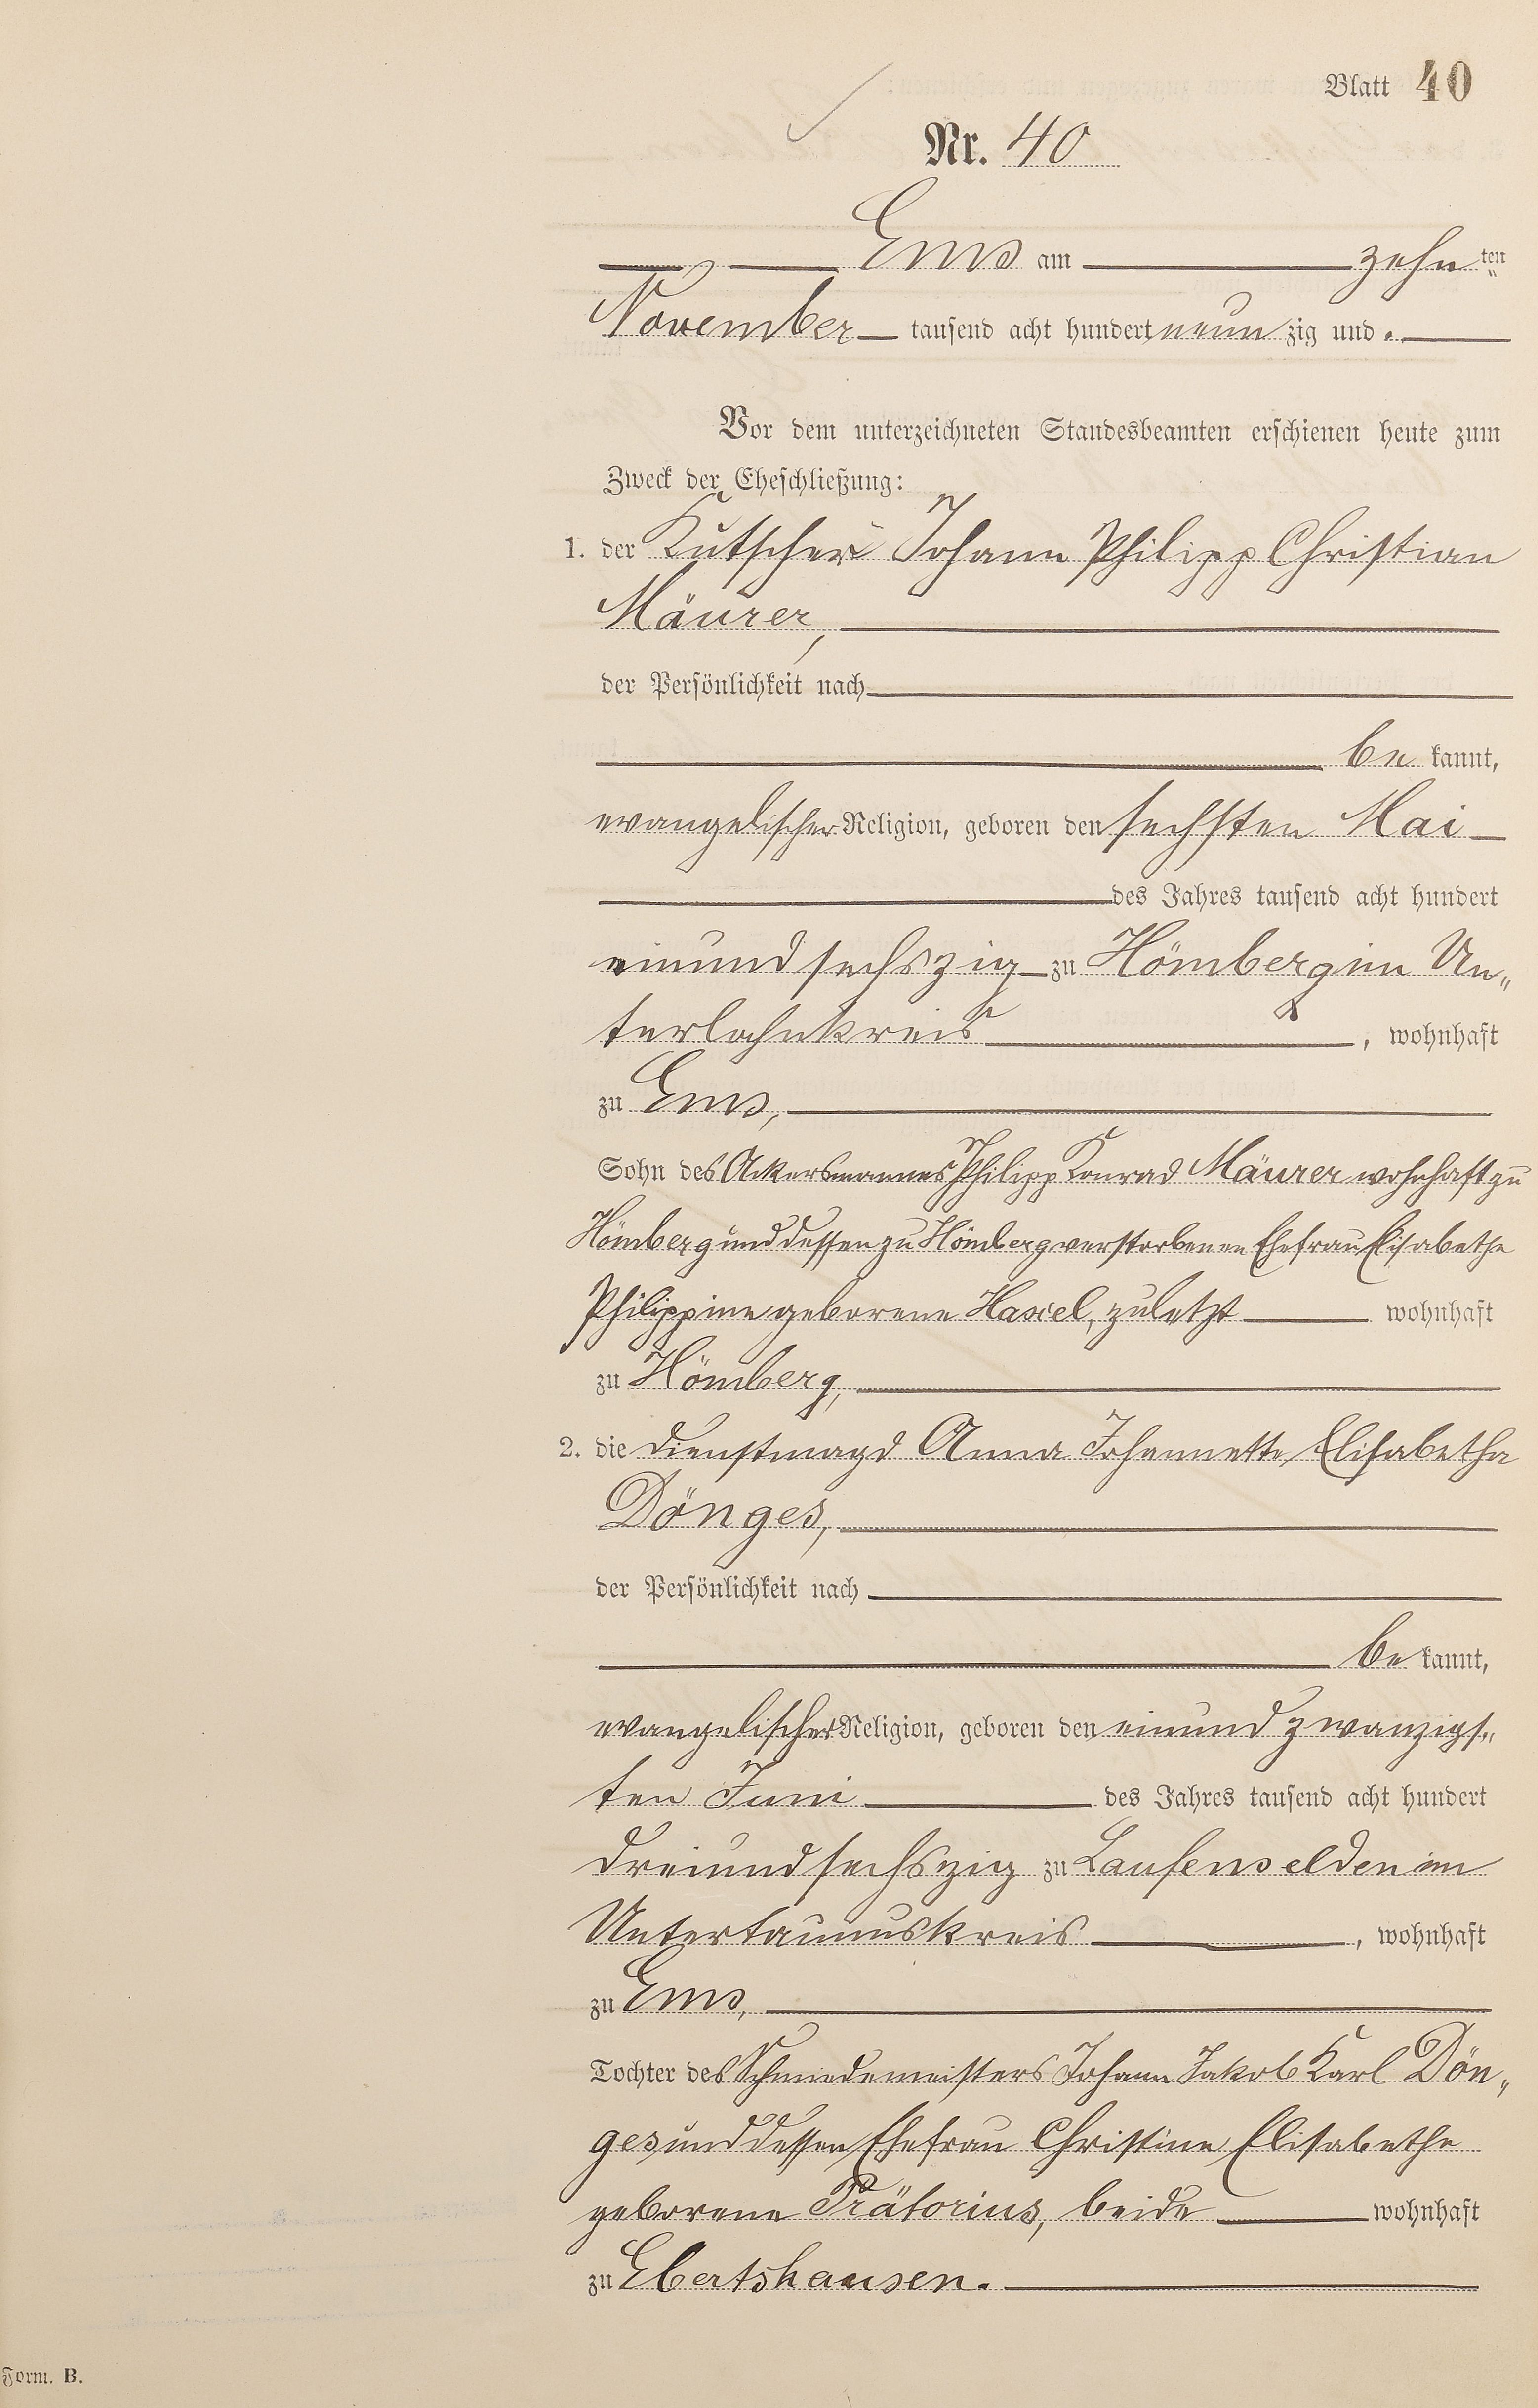 Blatt 40
Nr. 40
Ems am zehn ten
November tausend acht hundert neun zig und
Vor dem unterzeichneten Standesbeamten erschienen heute zum
Zweck der Eheschließung:
1. der Kutscher Johann Philipp Christian
Mäurer,
der Persönlichkeit nach
be kannt,
evangelischer Religion, geboren den sechsten Mai
des Jahres tausend acht hundert
einundsechszig zu Hömberg im Un„
terlahnkreis, wohnhaft
zu Ems,
Sohn des Ackersmannes Philipp Konrad Mäurer wohnhaft zu
Hömberg und dessen zu Hömberg verstorbenen Ehefrau Elisabethe
Philippine geborene zuletzt wohnhaft
zu Hömberg,
2. die Dienstmagd Anna Johannette Elisabetha
Dönges,
der Persönlichkeit nach
be kannt,
evangelischer Religion, geboren den einundzwanzigs„
ten Juni des Jahres tausend acht hundert
dreiundsechszig zu Laufenselden im
Untertaunuskreis, wohnhaft
zu Ems,
Tochter des Schmiedemeisters Johann Jakob Karl Dön„
ges und dessen Ehefrau Christine Elisabethe
geborene Prätorius, beide wohnhaft
zu Ebertshausen.
Form. B.